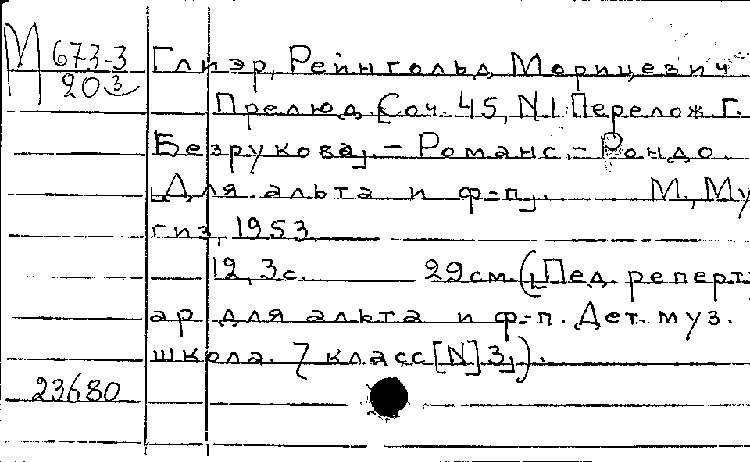 М 673-3
20 3
Глиэр, Рейнгольд Морицевич
Прелюд [Соч. 45, N1. Перелож. Г.
Безрукова]. - Романс. - Рондо.
[Для альта и ф-п]. М., Му
гиз, 1953
12, 3 с. 29 см. ([Пед. реперту
ар для альта и ф-п. Дет. муз.
школа. 7 класс [N] 3]).
23680